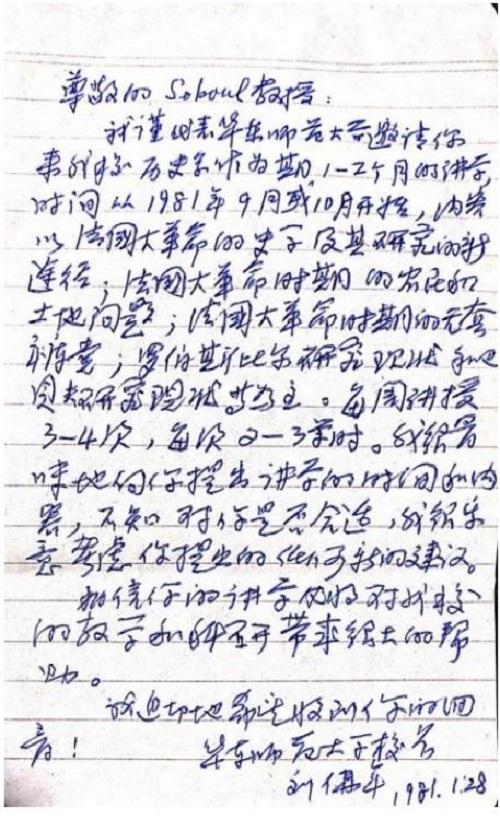 尊敬的 Soboul 教授：
我谨代表华东师范大学邀请你
来我校历史系作为期1-2个月的讲学，
时间从1981年9月或10月开始，内容
以法国大革命的史学及其研究的新
途径；法国大革命时期的农民和
土地问题；法国大革命时期的无套
裤汉党；罗伯斯比尔研究现状和
研究现状等为主。每周讲授
3-4次，每次2-3学时。我很冒
昧地向你提出讲学的时间和内
容，不知对你是否合适，我很乐
意考虑你提出的任何新的建议。
相信你的讲学必将对我校
的教学和科研带来很大的帮
助。
我迫切地希望收到你的回
音！ 华东师范大学校长
刘佛年，1981.1.28